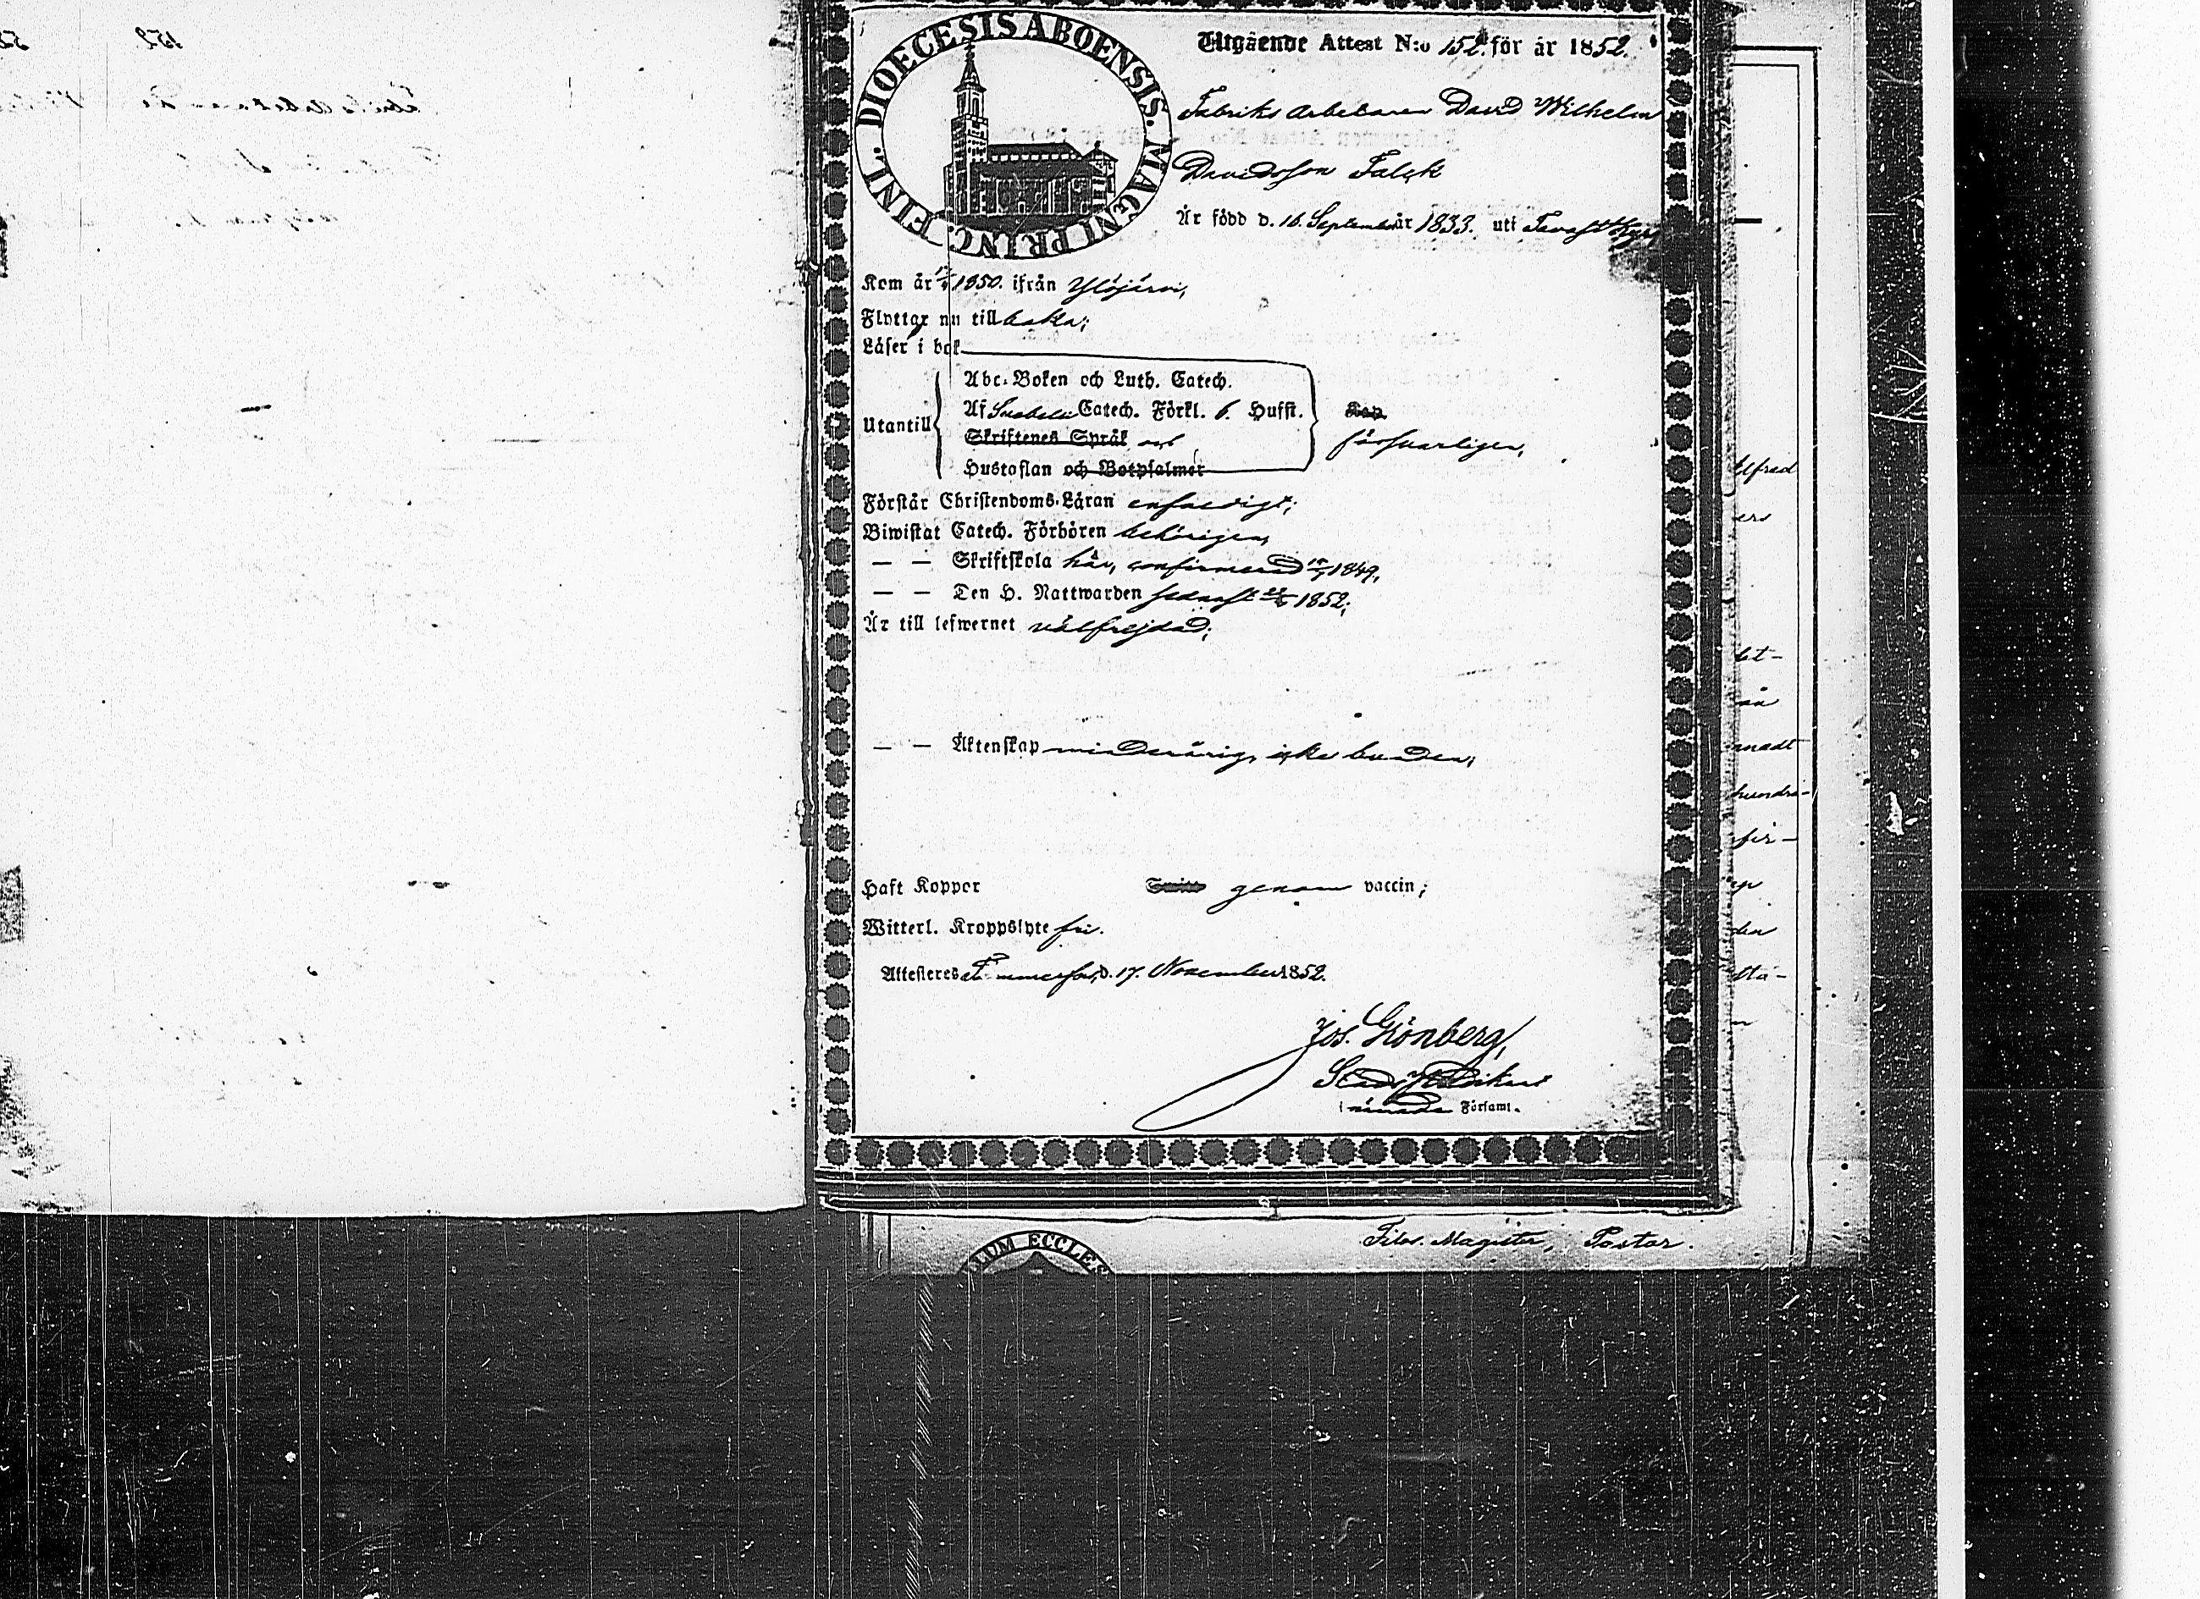 DIOECESIS ABOENSIS. MAGNI PRINC. FINL.
Utgående Attest N:o 152. för år 1852.
Fabriks Arbetaren David Wilhelm
Davidsson Falck
Är född d. 16. September år 1833. uti Tavastkyro
Kom år 1850. ifrån Ylöjärvi,
Flyttar nu tillbaka;
Läser i bok
Utantill
Abc-Boken och Luth. Catech.
Af Svebelii Catech. Förkl. 6. Hufst.
Skriftenes Språk och
Hustaflan och Botpsalmer
försvarligen,
Förstår Christendoms-Läran enfaldigt;
Biwistat Catech. Förhören behörigen,
— — Skriftskola här, confirmerad 1849,
— — Den H. Nattwarden sednast 1852;
Är till lefwernet välfrejdad;
— — Äktenskap minderårig, icke bunden;
Haft Koppor genom vaccin;
Witterl. Kroppslyte fri.
Attesteres af Tammerfors, d. 17. November 1852.
Jos. Grönberg,
Stads Predikant
i nämnde Församl.
Filos. Magister, Pastor.
UM ECCLES
Alfred
ers
bet-
nadt
hundra-
för-
den
152